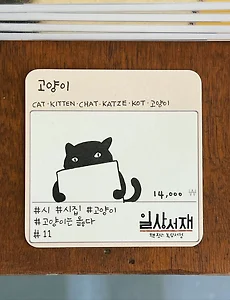 고양이
CAT·KITTEN·CHAT·KATZE·KOT·고양이
14,000 ₩
#시 #시집 #고양이
#고양이는 옳다
#11
일상서재